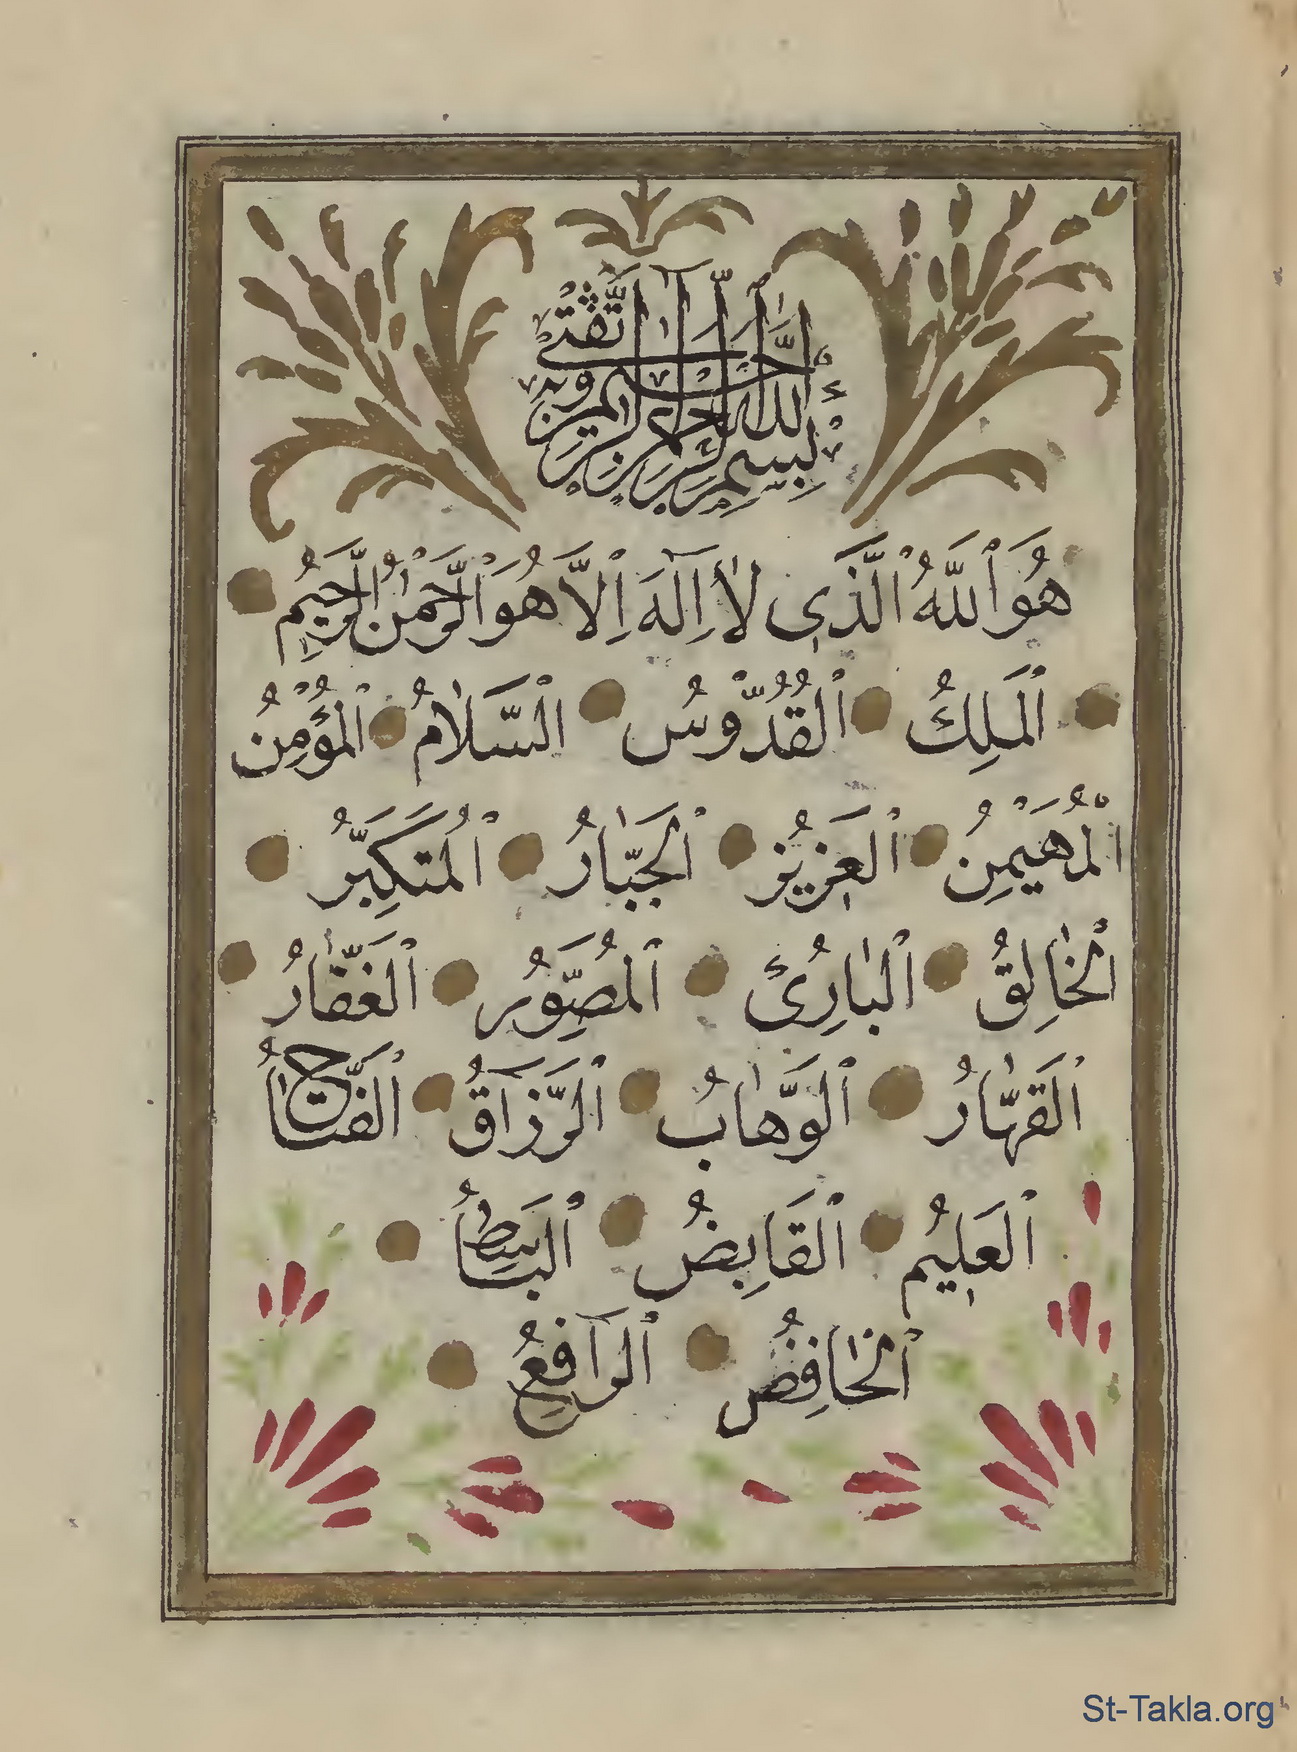 بِسْمِ اللهِ الرَّحْمٰنِ الرَّحِيمِ وَبِهِ ثِقَتِي
هُوَ اللهُ الَّذِي لَا إِلٰهَ إِلَّا هُوَ الرَّحْمٰنُ الرَّحِيمُ
الْمَلِكُ الْقُدُّوسُ السَّلَامُ الْمُؤْمِنُ
الْمُهَيْمِنُ الْعَزِيزُ الْجَبَّارُ الْمُتَكَبِّرُ
الْخَالِقُ الْبَارِئُ الْمُصَوِّرُ الْغَفَّارُ
الْقَهَّارُ الْوَهَّابُ الرَّزَّاقُ الْفَتَّاحُ
الْعَلِيمُ الْقَابِضُ الْبَاسِطُ
الْخَافِضُ الرَّافِعُ
St-Takla.org